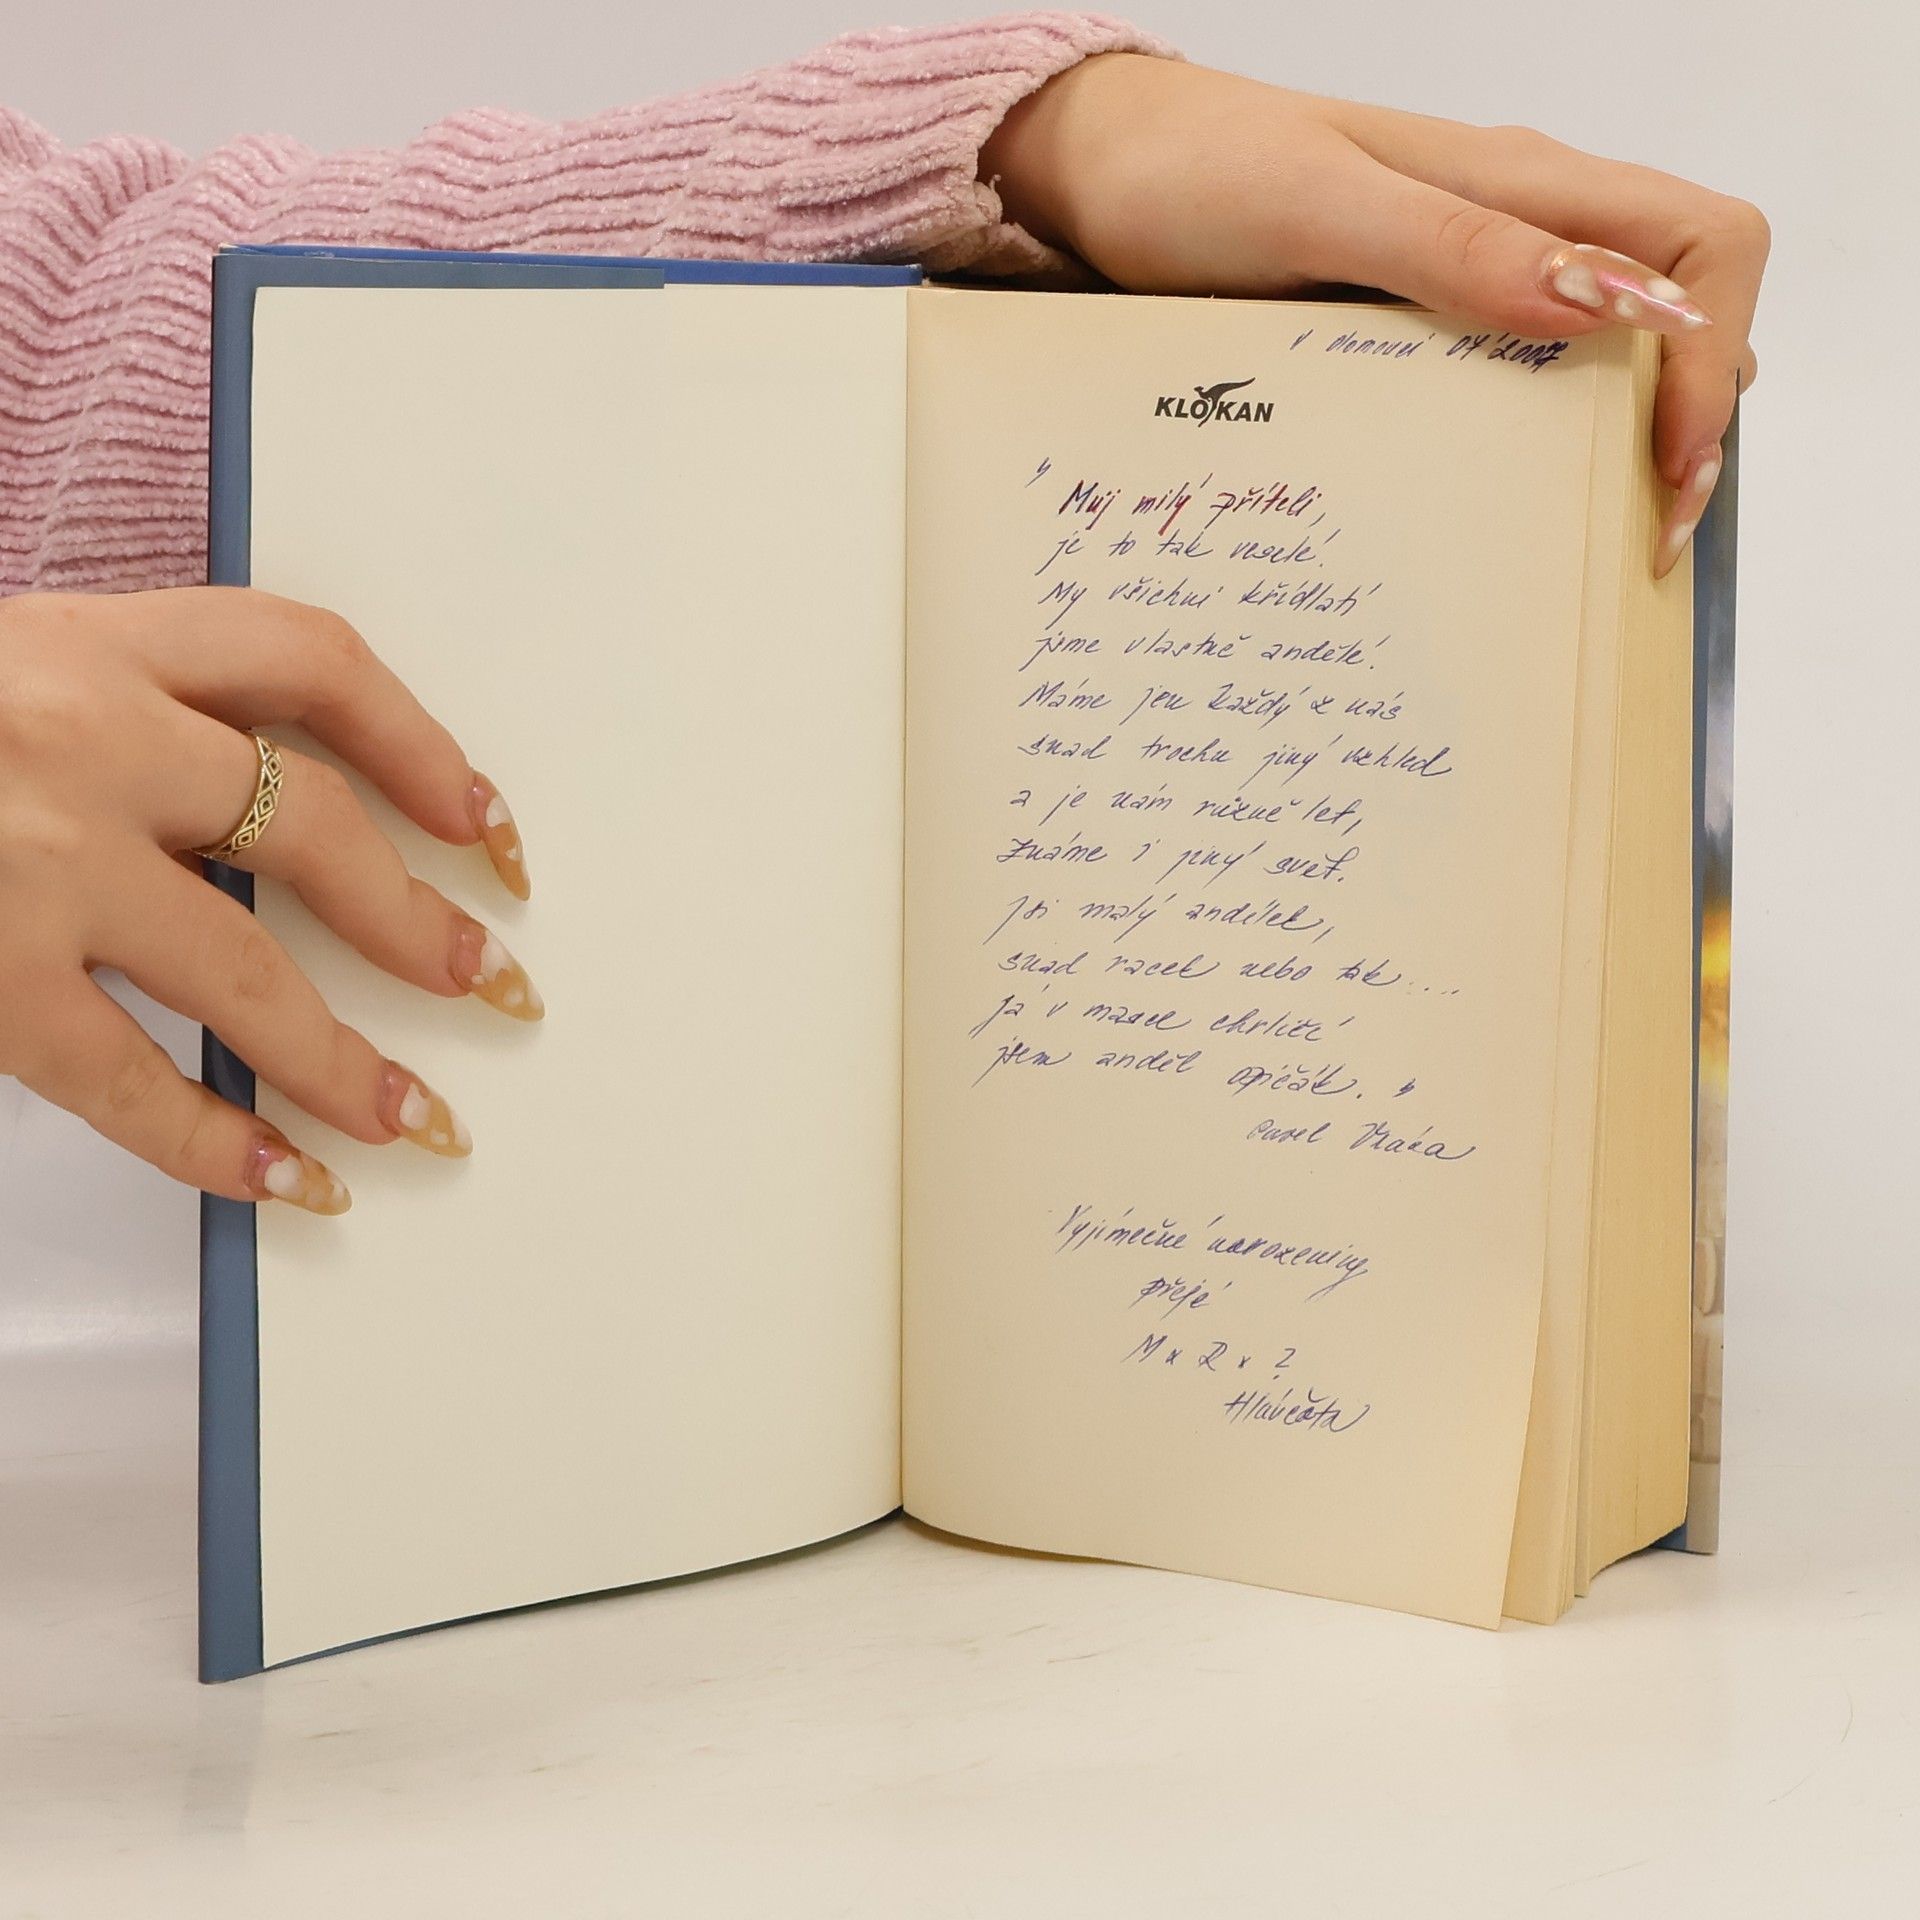 v domově 04'2007
KLOKAN
" Můj milý příteli,
je to tak veselé.
My všichni křídlatí
jsme vlastně andělé.
Máme jen každý z nás
snad trochu jiný vzhled
a je nám různě let,
známe i jiný svět.
jsi malý andílek,
snad racek nebo tak....
já v masce chrličí
jsem anděl opičák. "
Pavel Vrána
Vyjímečné narozeniny
přeje
M x R x ?
Hlávčota